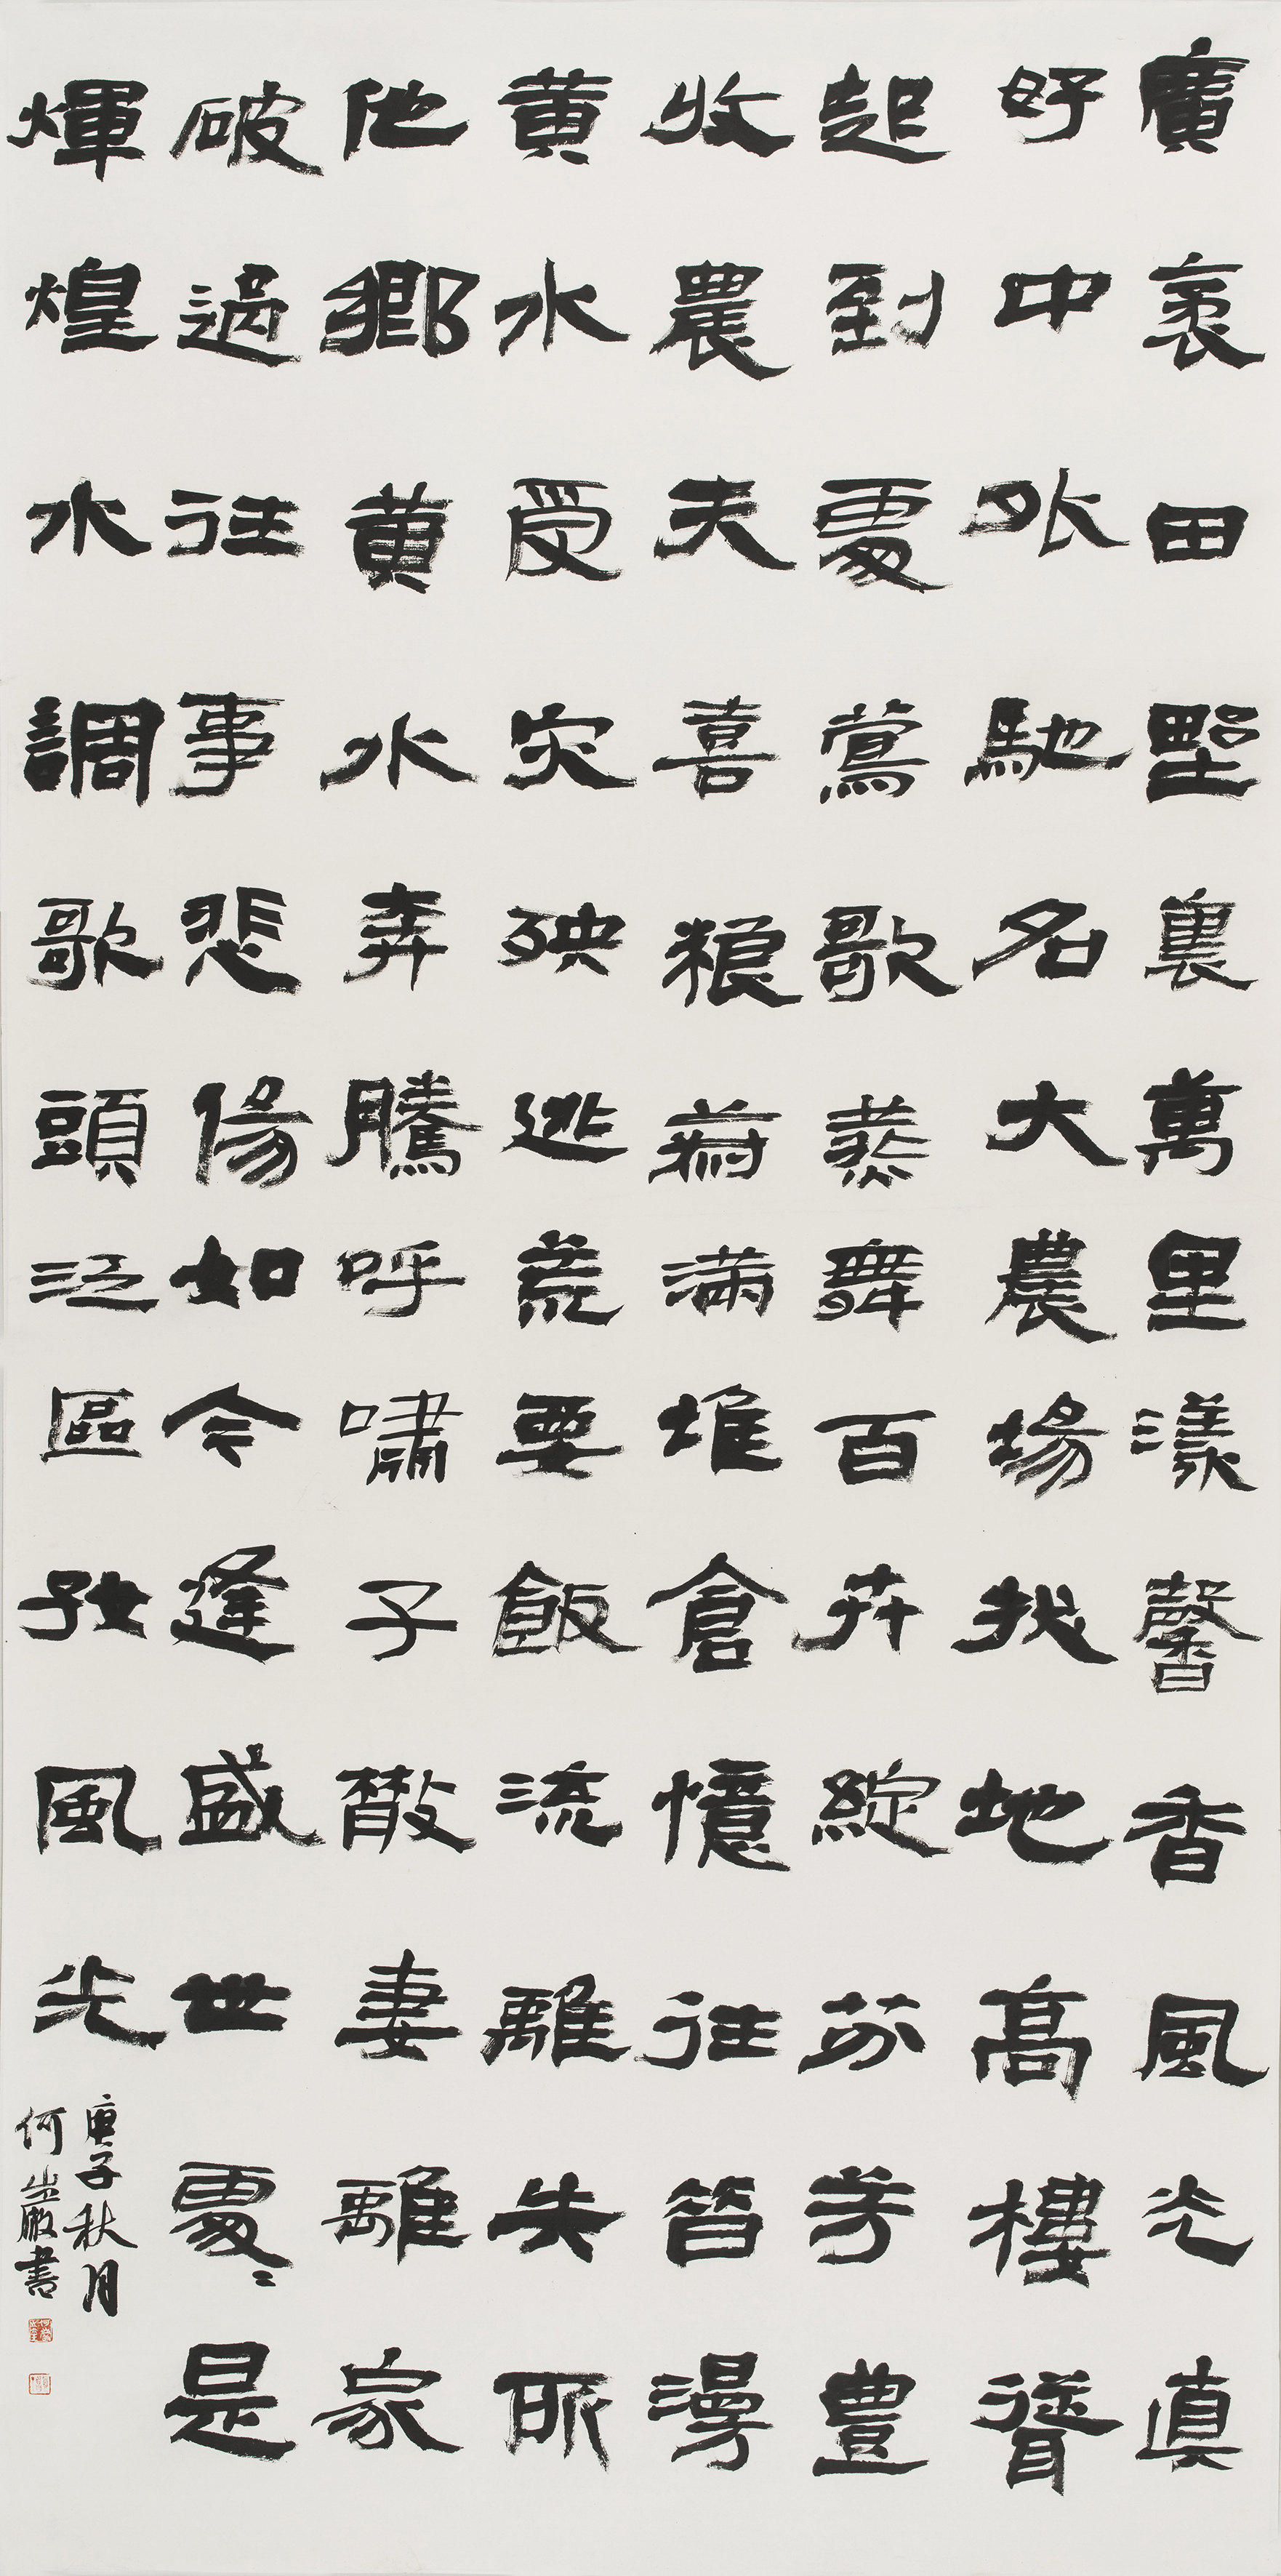 廣袤田野裏萬里漾馨香風光真
好中外馳名大農場拔地高樓聳
起到處鶯歌燕舞百卉綻芬芳豐
收農夫喜糧滿堆倉憶往昔漫
黃水受災殃逃荒要飯流離失所
他鄉黃水奔騰呼嘯子散妻離家
破過往事悲傷如今逢盛世處〻是
輝煌水調歌頭泛區好風光
庚子秋月
何巖書